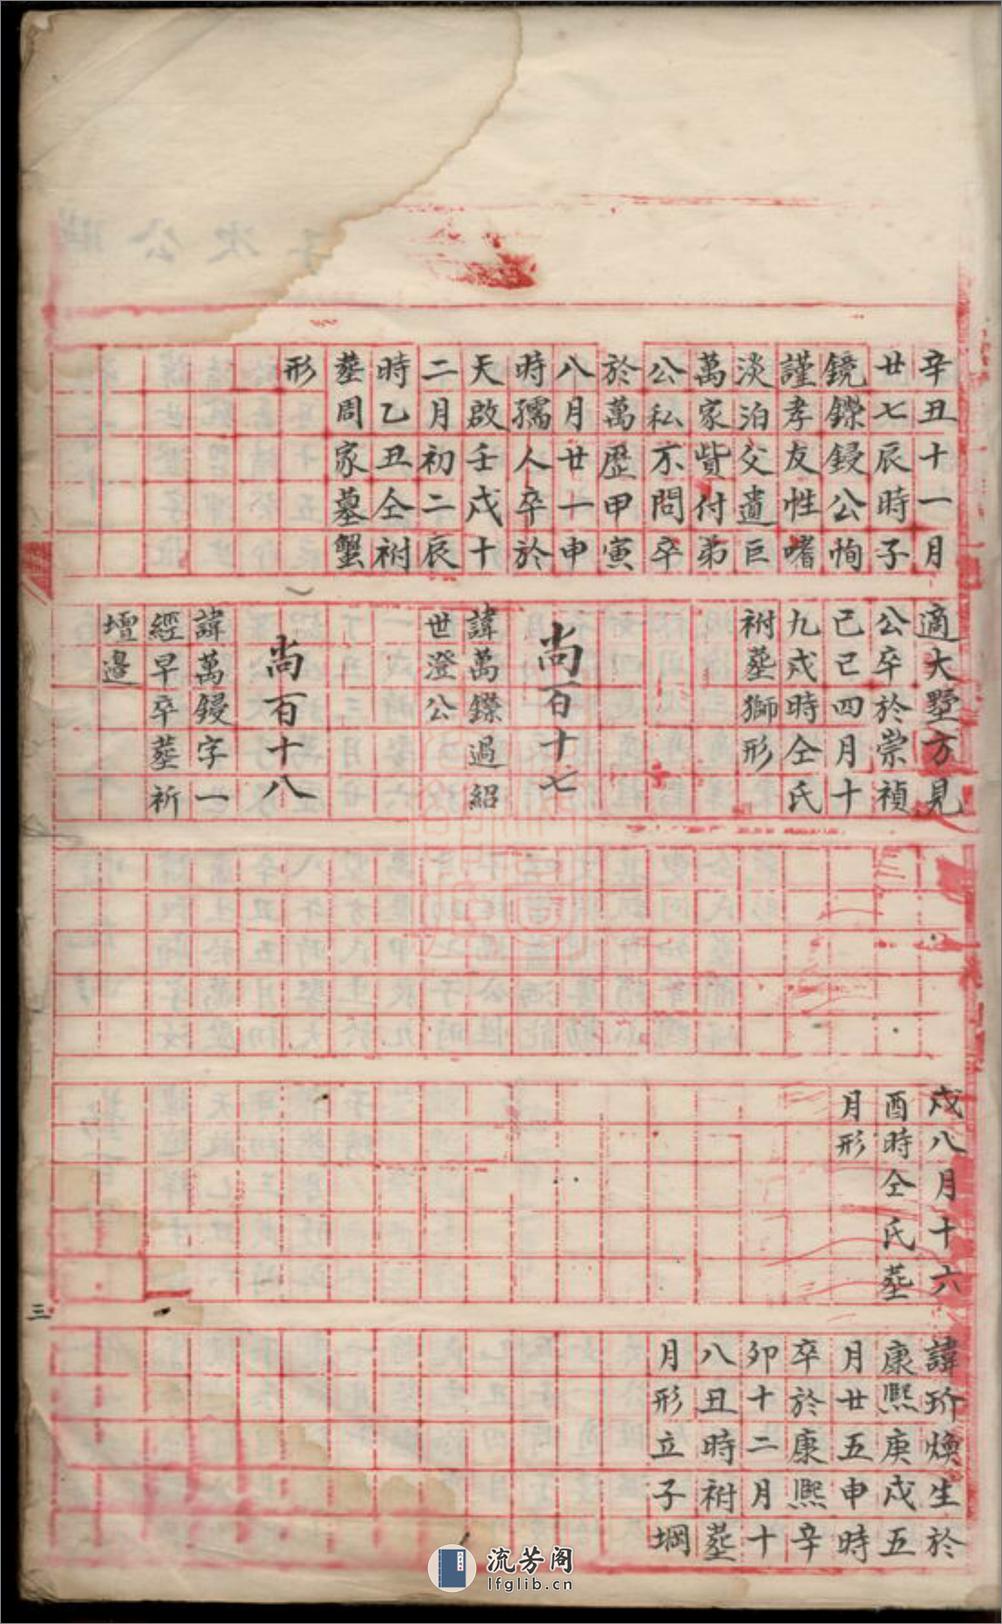 辛丑十一月
廿七辰時子
鏡鑠鋄公恂
謹孝友性嗜
淡泊父遺巨
萬家貲付弟
公私不問卒
於萬歷甲寅
八月廿一申
時孺人卒於
天啟壬戌十
二月初二辰
時乙丑仝祔
塟周家墓蟹
形
適大墅方見
公卒於崇禎
己巳四月十
九戌時仝氏
祔塟獅形
尚百十七
諱萬鑠過紹
世澄公
尚百十八
諱萬鋄字一
經早卒塟祈
壇邊
戌八月十六
酉時仝氏塟
月形
諱玠煥生於
康熙庚戌五
月廿五申時
卒於康熙辛
卯十二月十
八丑時祔塟
月形立子堈
三
流芳阁
lfglib.cn